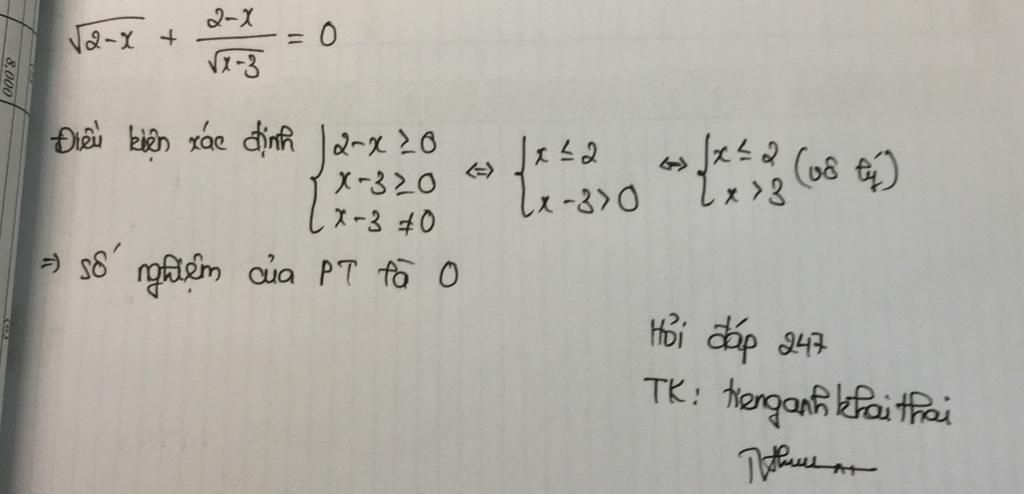 √(2-x) + (2-x)/√(x-3) = 0
Điều kiện xác định { 2-x ≥ 0 ; x-3 ≥ 0 ; x-3 ≠ 0 ⇔ { x ≤ 2 ; x-3 > 0 ⇔ { x ≤ 2 ; x > 3 (vô lý)
⇒ số nghiệm của PT là 0
Hỏi đáp 247
TK: tienganhkhaithai
8.000